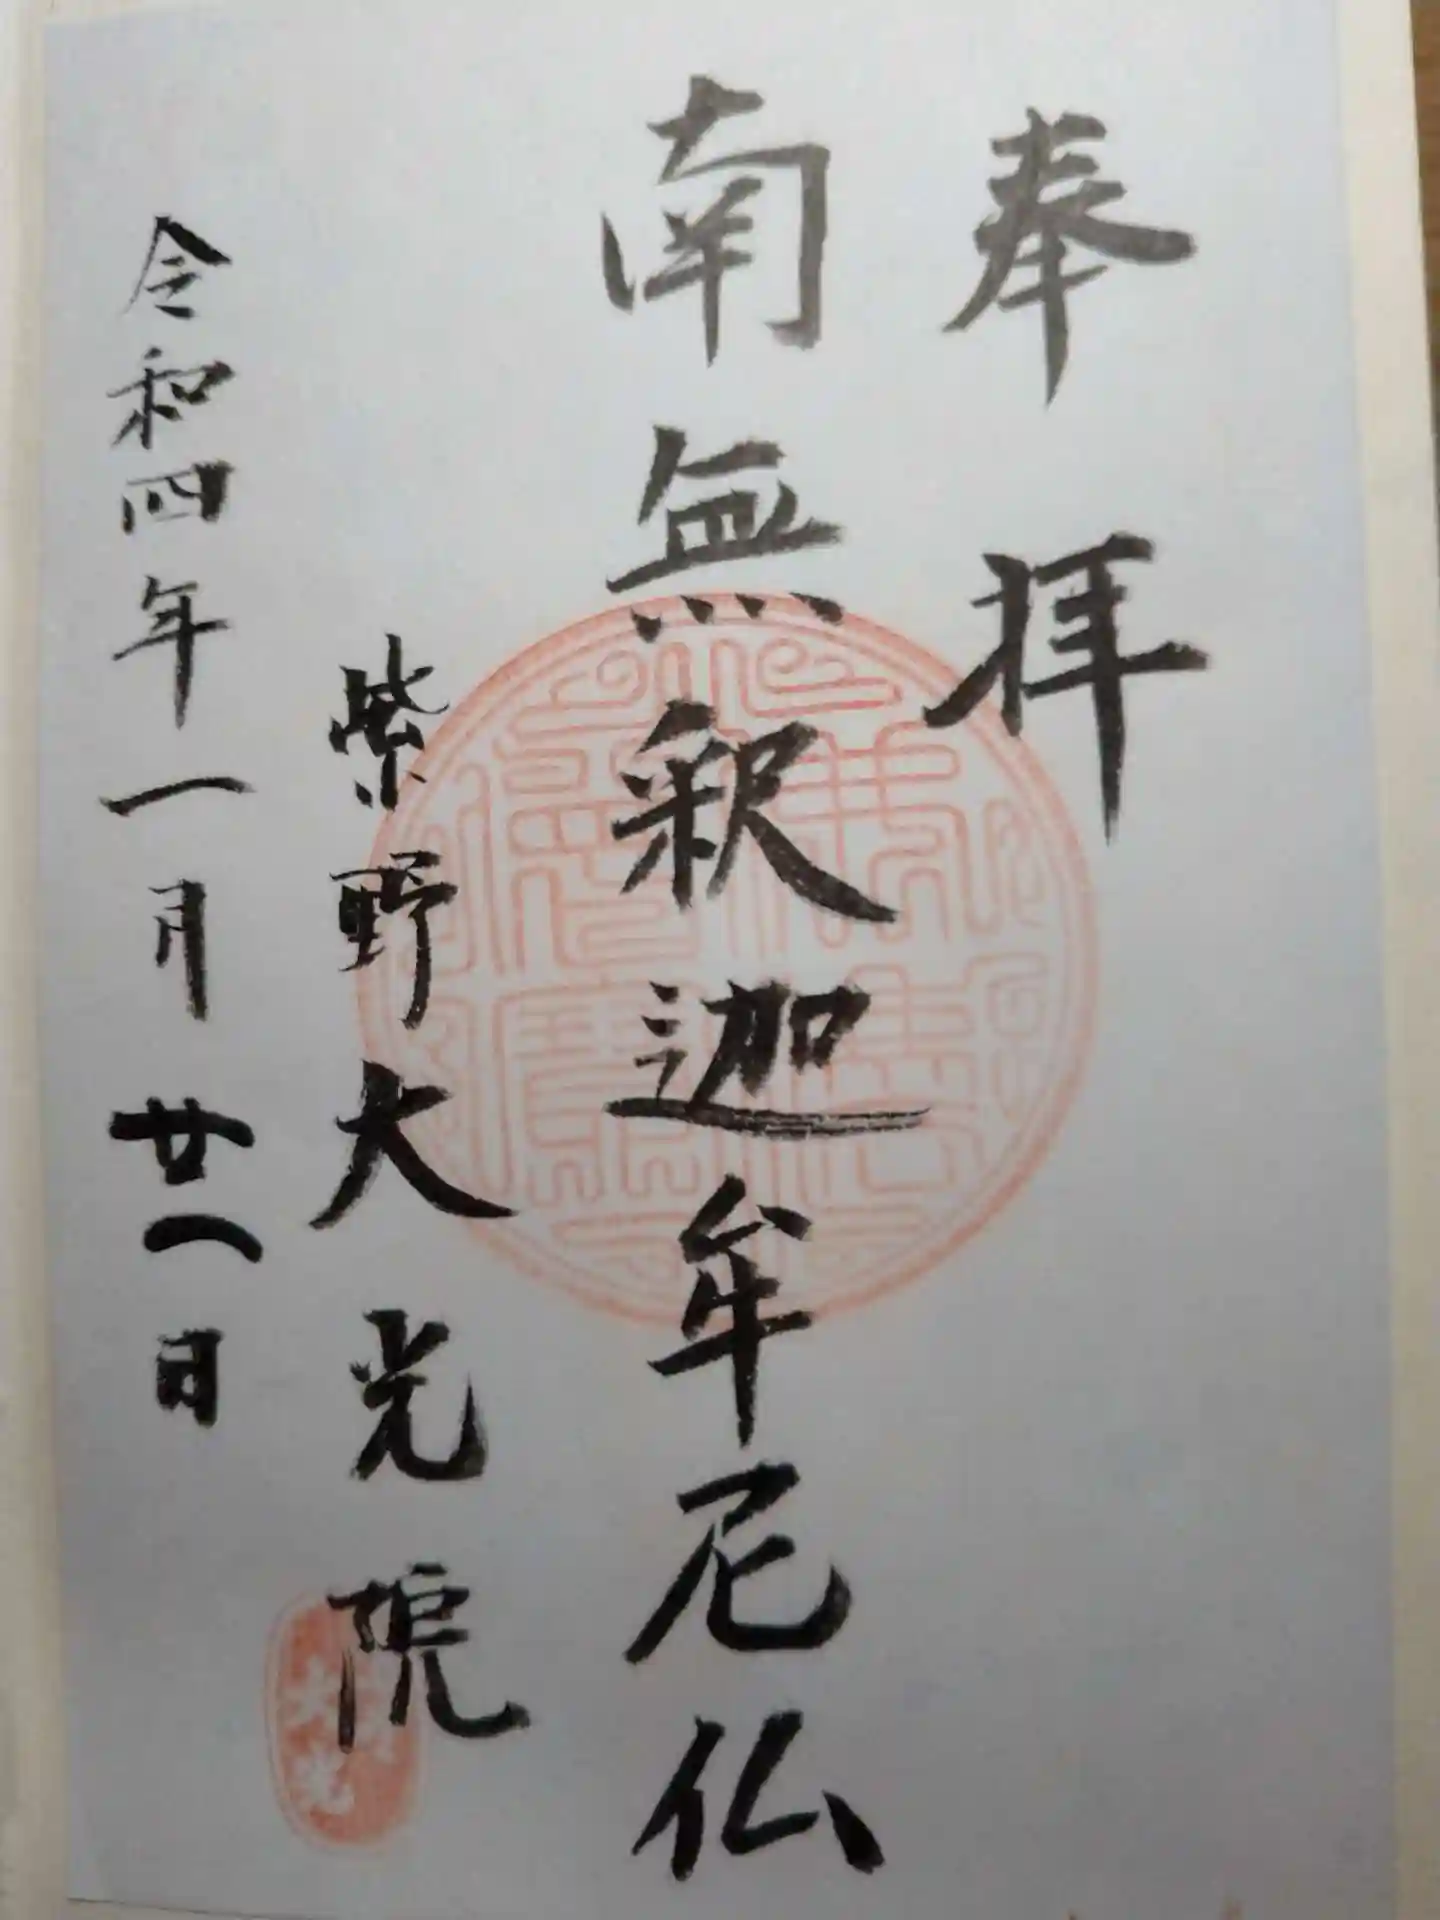 奉拝
南無釈迦牟尼仏
紫野大光院
令和四年一月廿一日